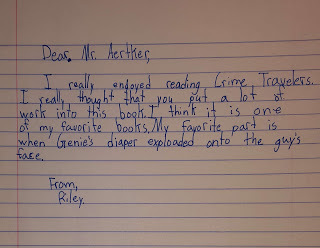 Dear, Mr. Aertker,
I really enjoyed reading Crime Travelers.
I really thought that you put a lot of
work into this book. I think it is one
of my favorite books. My favorite part is
when Genie's diaper exploaded onto the guy's
face.
From,
Riley